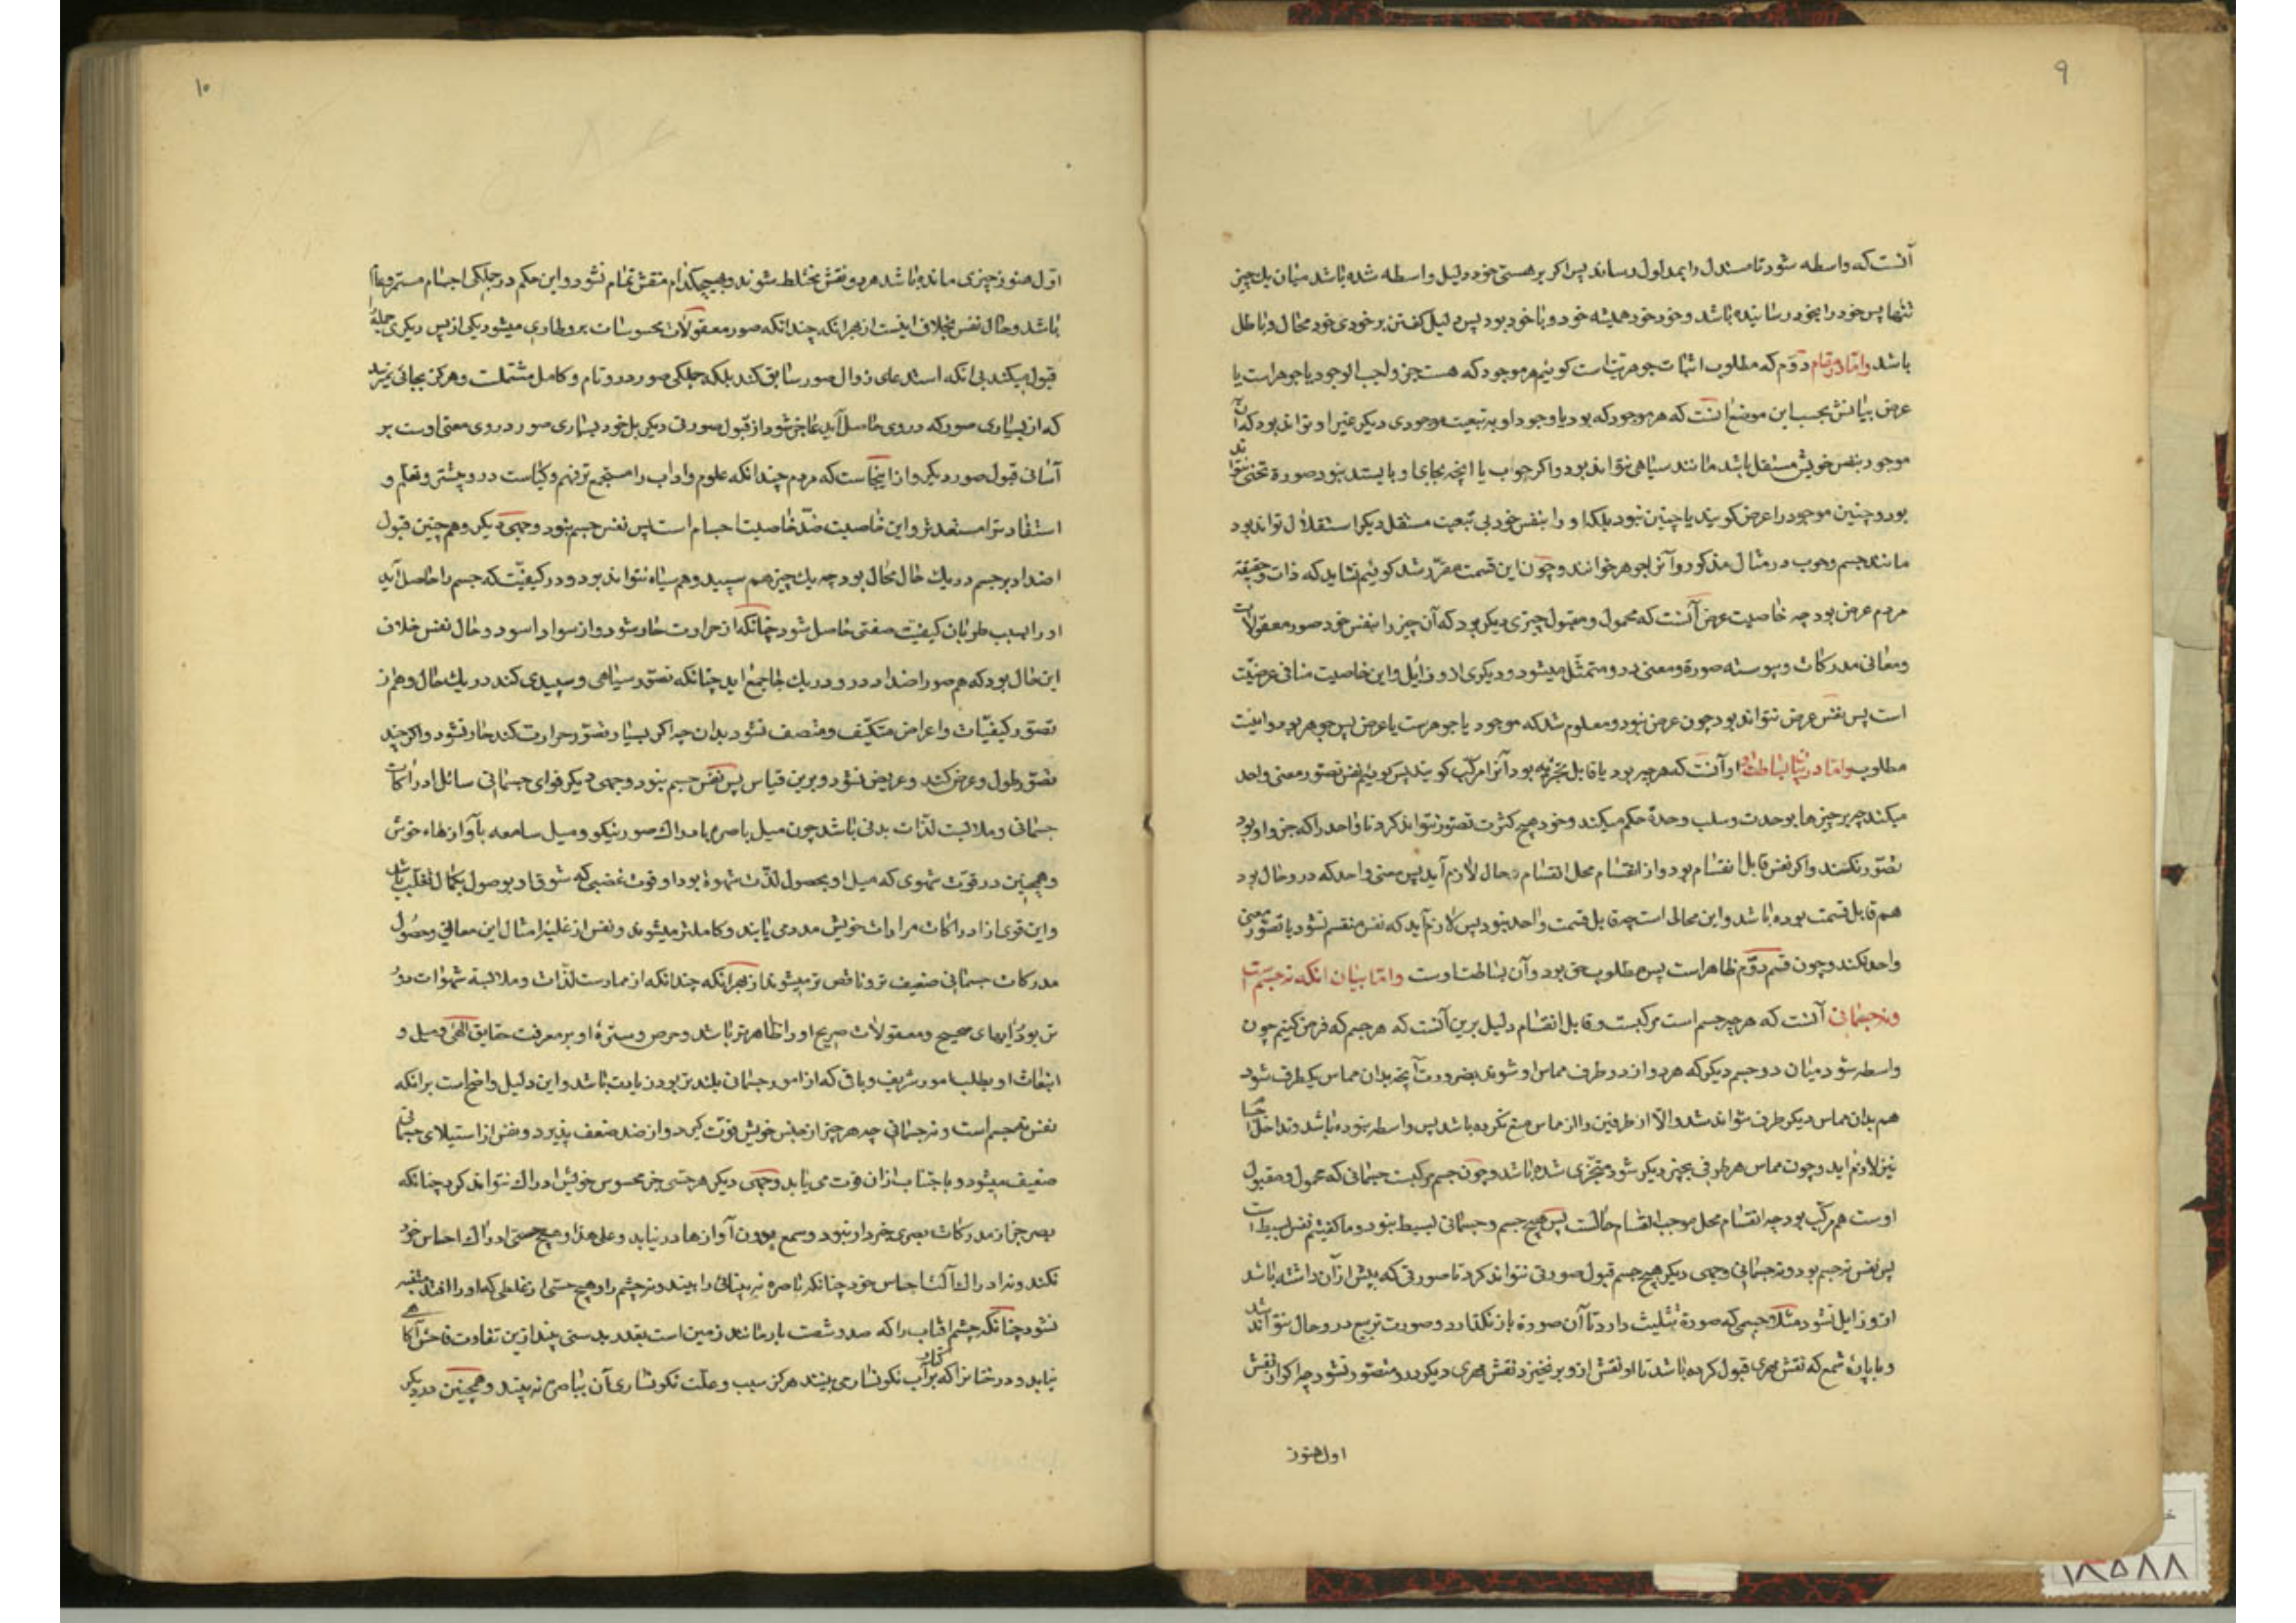 ٩
آنست که واسطه شود تا مستدل را بمدلول رساند پس اکر بر هستی خود دلیل واسطه شده باشد میان یک چیز
تنها پس خود را بخود رسانیده باشد و خود خود همیشه خود و با خود بود پس دلیل کفتن بر خودی خود محال و باطل
باشد واما در مقام دوّم که مطلوب اثبات جوهریتست کوئیم هر موجود که هست جز واجب الوجود یا جوهر است یا
عرض بیانش بحسب این موضع آنست که هر موجود که بود یا وجود او به تبعیت موجودی دیکر غیر او تواند بود که آن
موجود بنفس خویش مستقل باشد مانند سیاهی نتواند بود و اکر چوب یا آنچه بجای او بایستد نبود صورة تختی نتواند
بود و چنین موجود را عرض کویند یا چنین نبود بلکه او را بنفس خود بی تبعیت مستقل دیکر استقلال تواند بود
مانند جسم و چوب در مثال مذکور و آنرا جوهر خوانند و چون این قسمت مقرّر شد کوئیم نشاید که ذات و حقیقة
مردم عرض بود چه خاصیت عرض آنست که محمول و مقبول چیزی دیکر بود که آن چیز را بنفس خود صور معقولات
و معانی مدرکات و پیوسته صورة و معنی درو متمثّل میشود و دیکری ازو زایل و این خاصیت منافی عرضیّت
است پس نفس عرض نتواند بود چون عرض نبود و معلوم شد که موجود یا جوهرست یا عرض پس جوهر بود و اینست
مطلوب و اما در بیان بساطت او آنست که هر چیز بود یا قابل تجزیه بود آنرا مرکّب کویند پس کوئیم نفس تصوّر معنی واحد
میکند چه بر چیزها بوحدت و سلب وحدة حکم میکند و خود هیچ کثرت تصوّر نتواند کرد تا واحد را که جزو او بود
تصوّر نکند و اکر نفس قابل انقسام بود و از انقسام محل انقسام حال لازم آید پس معنی واحد که درو حال بود
هم قابل قسمت بوده باشد و این محالی است چه قابل قسمت واحد نبود پس لازم آید که نفس منقسم نشود یا تصوّر معنی
واحد نکند و چون قسم دوّم ظاهر است پس مطلوب حق بود و آن بساطت اوست و اما بیان آنکه نه جسم است
و نه جسمانی آنست که هر چه جسم است مرکبست و قابل انقسام دلیل برین آنست که هر جسم که فرض کنیم چون
واسطه شود میان دو جسم دیکر که هر دو از دو طرف مماس او شوند بضرورت آنچه بدان مماس یکطرف شود
هم بدان مماس دیکر طرف نتواند شد و الّا از طرفین و از تماس منع نکرده باشد پس واسطه نبوده باشد و تداخل اجسام
نیز لازم اید و چون مماس هر طرفی بچیز دیکر شود متجزّی شده باشد و چون جسم مرکبست جسمانی که محمول و مقبول
اوست هم مرکّب بود چه انقسام محل موجب انقسام حالّست پس هیچ جسم و جسمانی بسیط نبود و ما کفتیم نفس بسیط است
پس نفس نه جسم بود و نه جسمانی وجهی دیکر هیچ جسم قبول صورتی نتواند کرد تا صورتی که پیش از آن داشته باشد
ازو زایل نشود مثلا جسمی که صورة تثلیث دارد تا آن صورة باز نکذارد و صورت تربیع درو حال نتواند شد
و یا پارهٔ شمع که نقش مهری قبول کرده باشد تا او نقش ازو بر نخیزد نقش مهری دیکر درو متصوّر نشود چه اکر از نقش
اول هنوز
١٠
اوّل هنوز چیزی مانده باشد هر دو نقش مختلط شوند و بهیچکدام منقش تمام نشود و این حکم در جملکی اجسام مستمر و عام
باشد و حال نفس بخلاف اینست از بهر انکه چندانکه صور معقولات محسوسات برو طاری میشود یکی از پس دیکری جمله
قبول میکند بی انکه استدعای زوال صور سابق کند بلکه جملکی صور درو تام و کامل متمثلست و هرکز بجائی نرسد
که از بسیاری صور که در وی حاصل آید عاجز شود از قبول صورتی دیکر بل خود بسیاری صور در وی معین اوست بر
آسانی قبول صور دیکر و از اینجاست که مردم چندانکه علوم و اداب را مستجمع تر فهم و کیاست درو بیشتر و تعلّم و
استفادت را مستعد تر و این خاصیت ضدّ خاصیت اجسام است پس نفس جسم نبود وجهی دیکر و هم چنین قبول
اضداد بر جسم در یک حال محال بود چه یک چیز هم سپید و هم سیاه نتواند بود و در کیفیّت که جسم را حاصل آید
او را بسبب طریان کیفیت صفتی حاصل شود چنانکه از حرارت حار شود و از سواد اسود و حال نفس خلاف
این حال بود که هم صور اضداد درو در یک جا جمع اید چنانکه تصوّر سیاهی و سپیدی کند در یک حال و هم از
تصوّر کیفیّات و اعراض متکیّف و متصف نشود بدان چه اکر بسیار تصوّر حرارت کند حار نشود و اکر چند
تصوّر طول و عرض کند و عریض نشود و برین قیاس پس نفس جسم نبود وجهی دیکر قوای جسمانی سائل ادراکات
جسمانی و ملابست لذّات بدنی باشد چون میل باصره بادراک صور نیکو و میل سامعه بآوازهاء خوش
و همچنین در قوّت شهوی که میل او بحصول لذّت شهوة بود و قوت غضبی که شوق او بوصول بکمال تغلب باشد
و این قوی از ادراکات مرادات خویش مدد می یابند و کاملتر میشوند و نفس از غلبهٔ امثال این معانی و حصُول
مدرکات جسمانی ضعیف تر و ناقص تر میشوند از بهر انکه چندانکه از ممارست لذّات و ملابسة شهوات دور
تر بود رایهای صحیح و معقولات صریح او را ظاهرتر باشد و حرص و ستره او بر معرفت حقایق الهی و میل و
انبعاث او بطلب امور شریف و باقی که از امور جسمانی بلندتر بود زیادت باشد و این دلیل واضح است بر انکه
نفس نه جسم است و نه جسمانی چه هر چیز از جنس خویش قوّت کیرد و از ضد ضعف پذیرد و نفس از استیلای جسمانی
ضعیف میشود و باجتناب از ان قوت می یابد وجهی دیکر هر حسّی جز محسوس خویش ادراک نتواند کرد چنانکه
بصر جز از مدرکات بصری خبردار نبود و سمع بیرون آوازها در نیابد و علی هذا و هیچ حسّی ادراک احساس خود
نکند و نه ادراک آلت احساس خود چنانکه باصره نه بینائی را بیند و نه چشم را و هیچ حسّی از غلطی که او را افتد متنبه
نشود چنانکه چشم افتاب را که صد و شصت بار مانند زمین است بقدر بدستی بیند از ین تفاوت فاحش آکاهی
نیابد و درختانرا که بر کنار آب نکونسار می بیند هرکز سبب و علّت نکونساری آن بباصره نه بیند و همچنین در دیکر
١٨٥٨٨